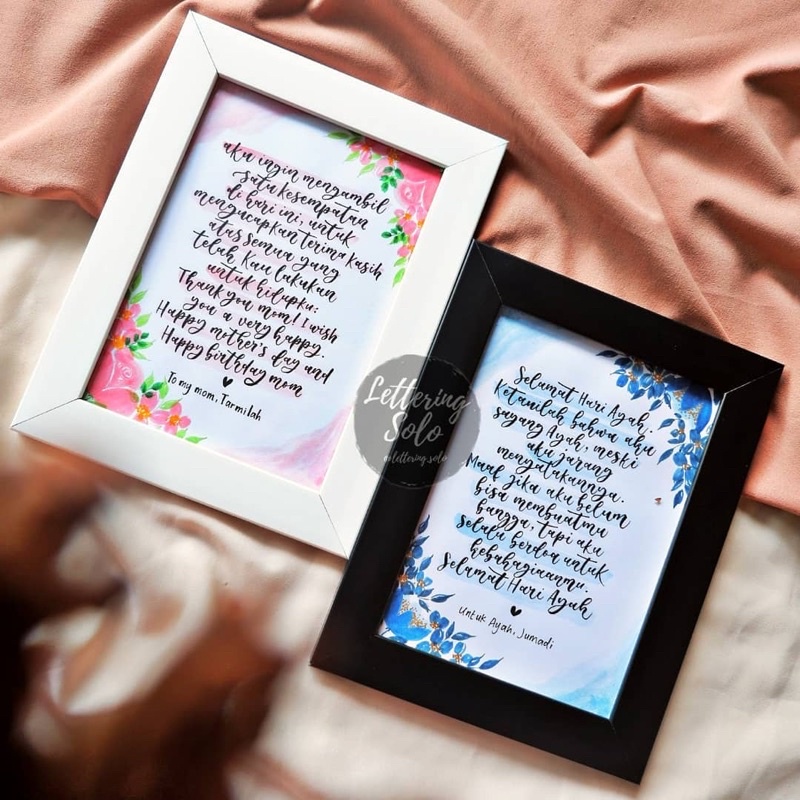 aku ingin mengambil
satu kesempatan
di hari ini, untuk
mengucapkan terima kasih
atas semua yang
telah kau lakukan
untuk hidupku:
Thank you mom! I wish
you a very happy.
Happy mother's day and
Happy birthday mom
To my mom, Tarmilah
Lettering
Solo
@lettering.solo
Selamat Hari Ayah.
Ketahuilah bahwa aku
sayang Ayah, meski
aku jarang
menyatakannya.
Maaf jika aku belum
bisa membuatmu
bangga, tapi aku
selalu berdoa untuk
kebahagiaanmu.
Selamat Hari Ayah
untuk Ayah, Jumadi